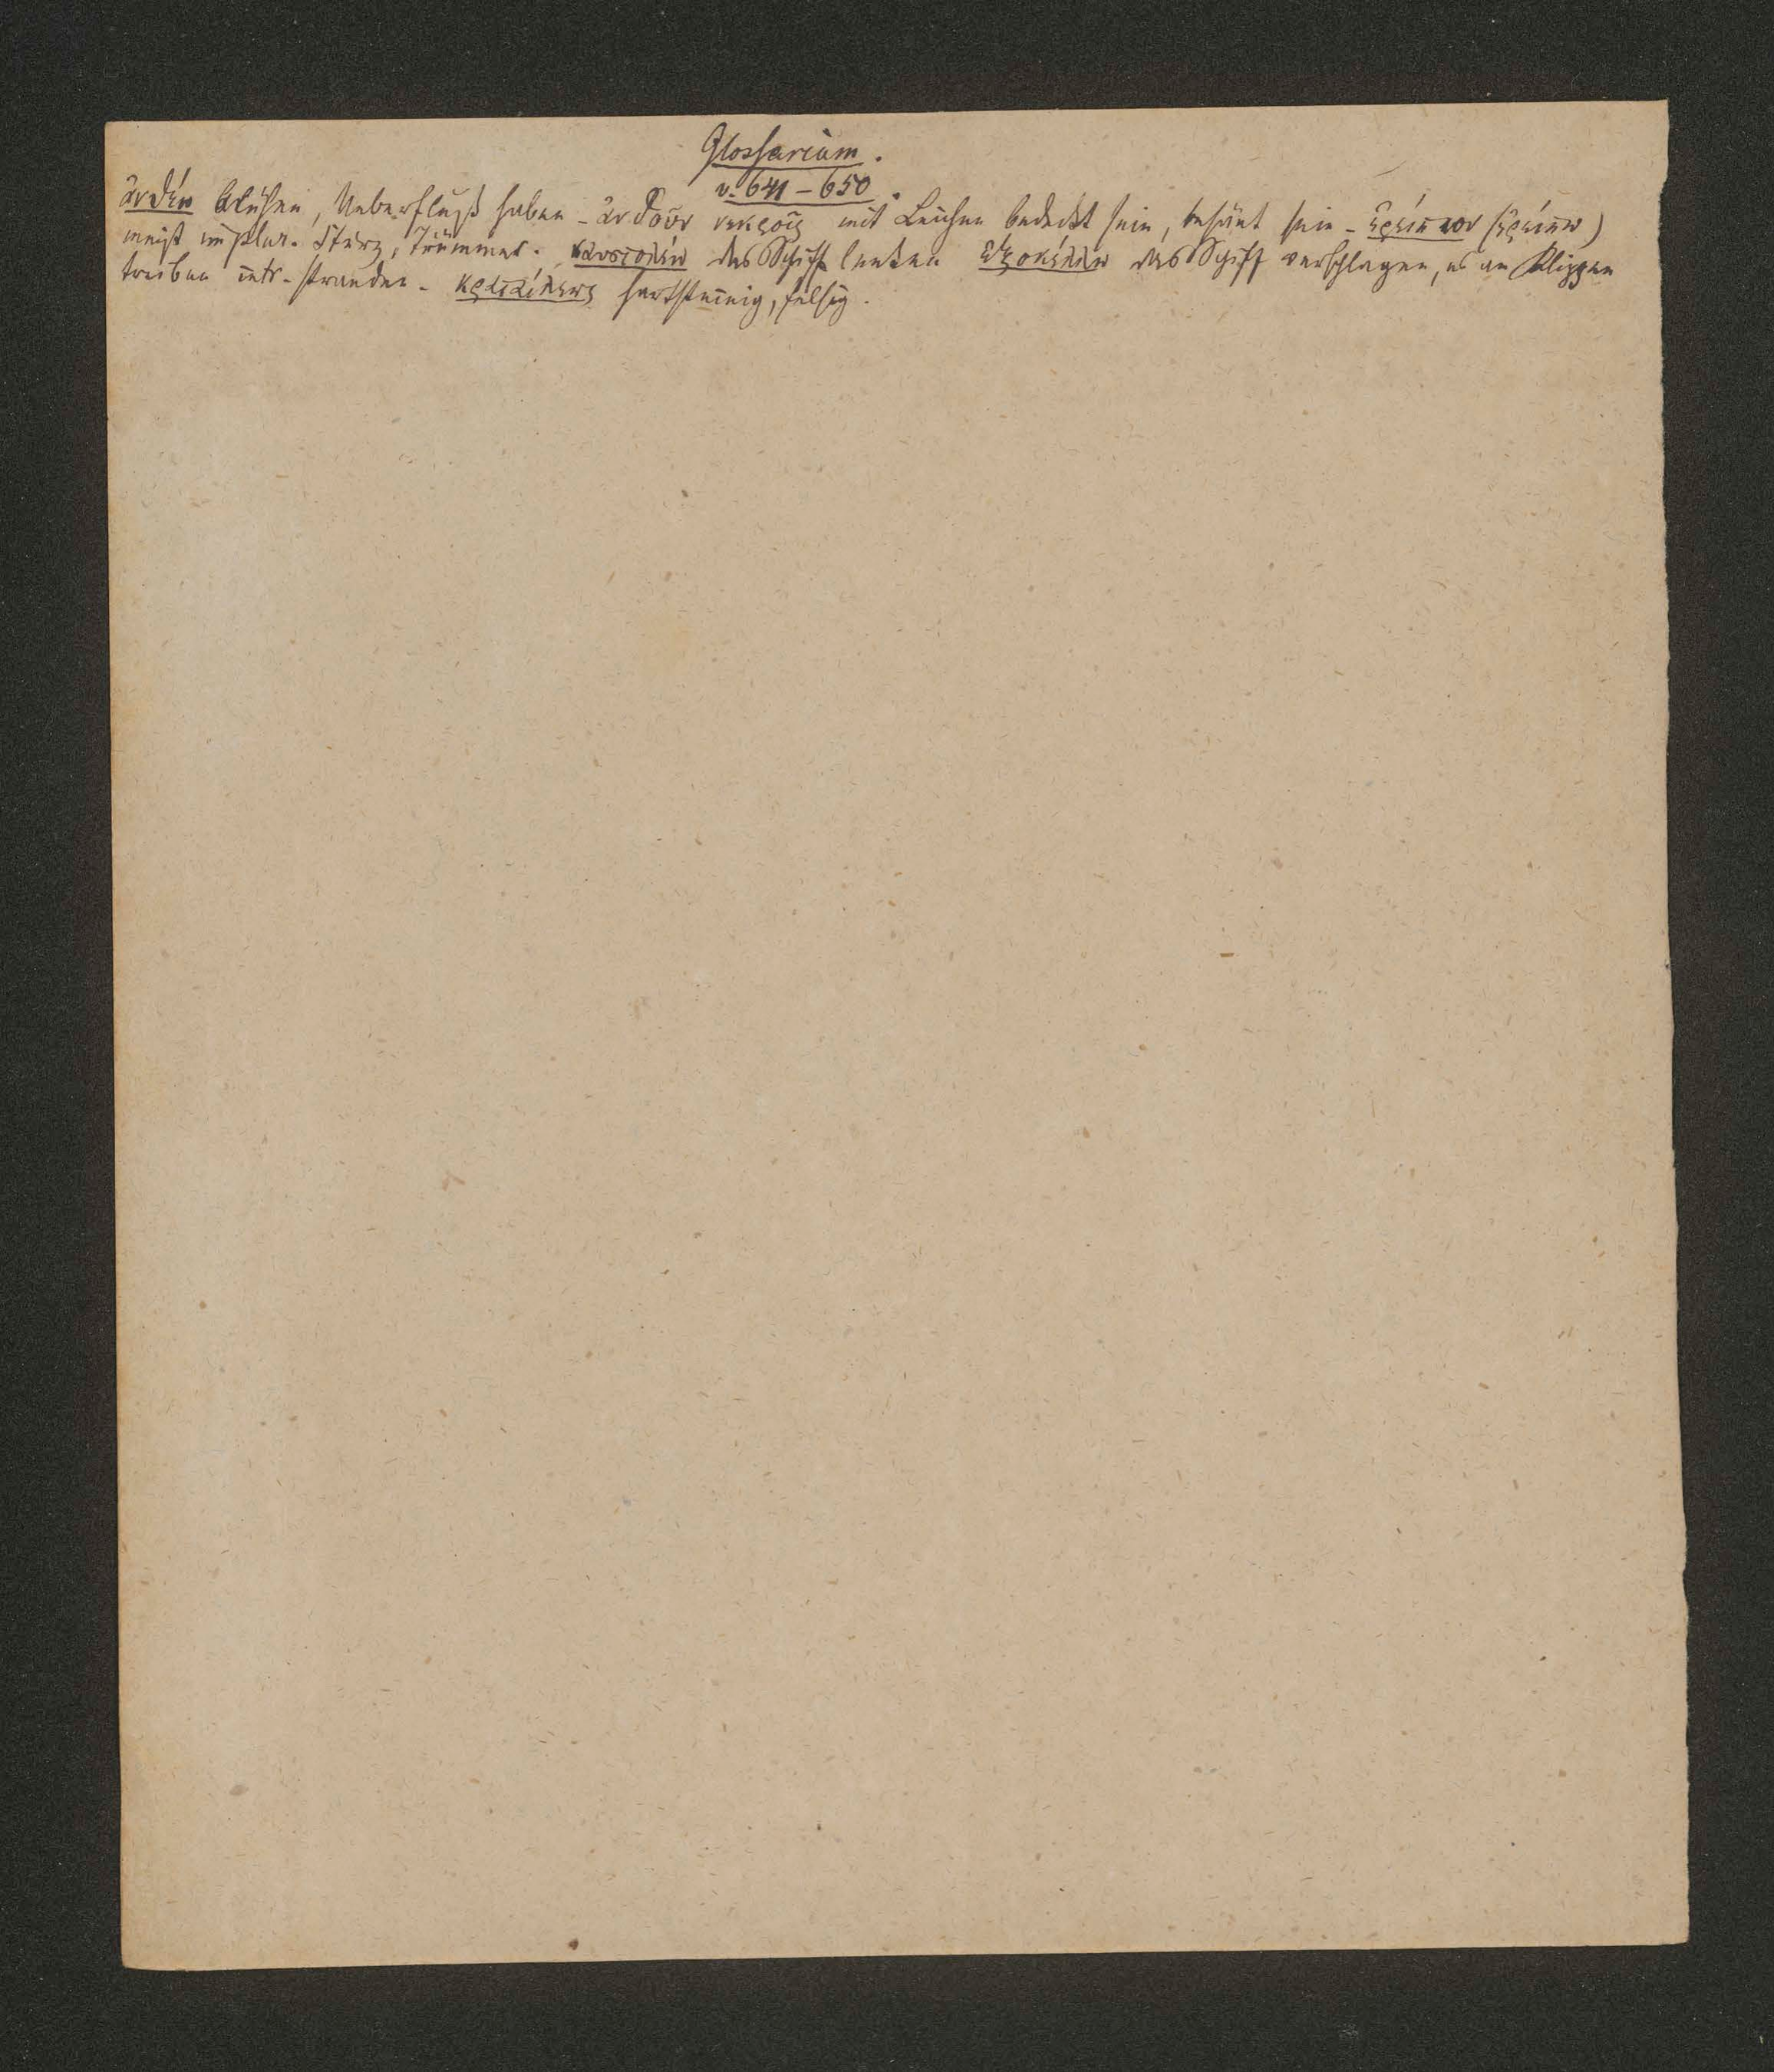 Glossarium.
v. 641 – 650.
ἀνθεῖν blühen, Ueberfluß haben – ἀνθοῦν νεκροῖς mit Leichen bedeckt sein, besäet sein – ἐρείπιον (ἐρείπω)
meist im plur. Sturz, Trümmer. ναυστολεῖν das Schiff lenken ἐξοκέλλειν das Schiff verschlagen, es an Klippen
treiben intr. stranden – κραταίλεως hartsteinig, felsig.